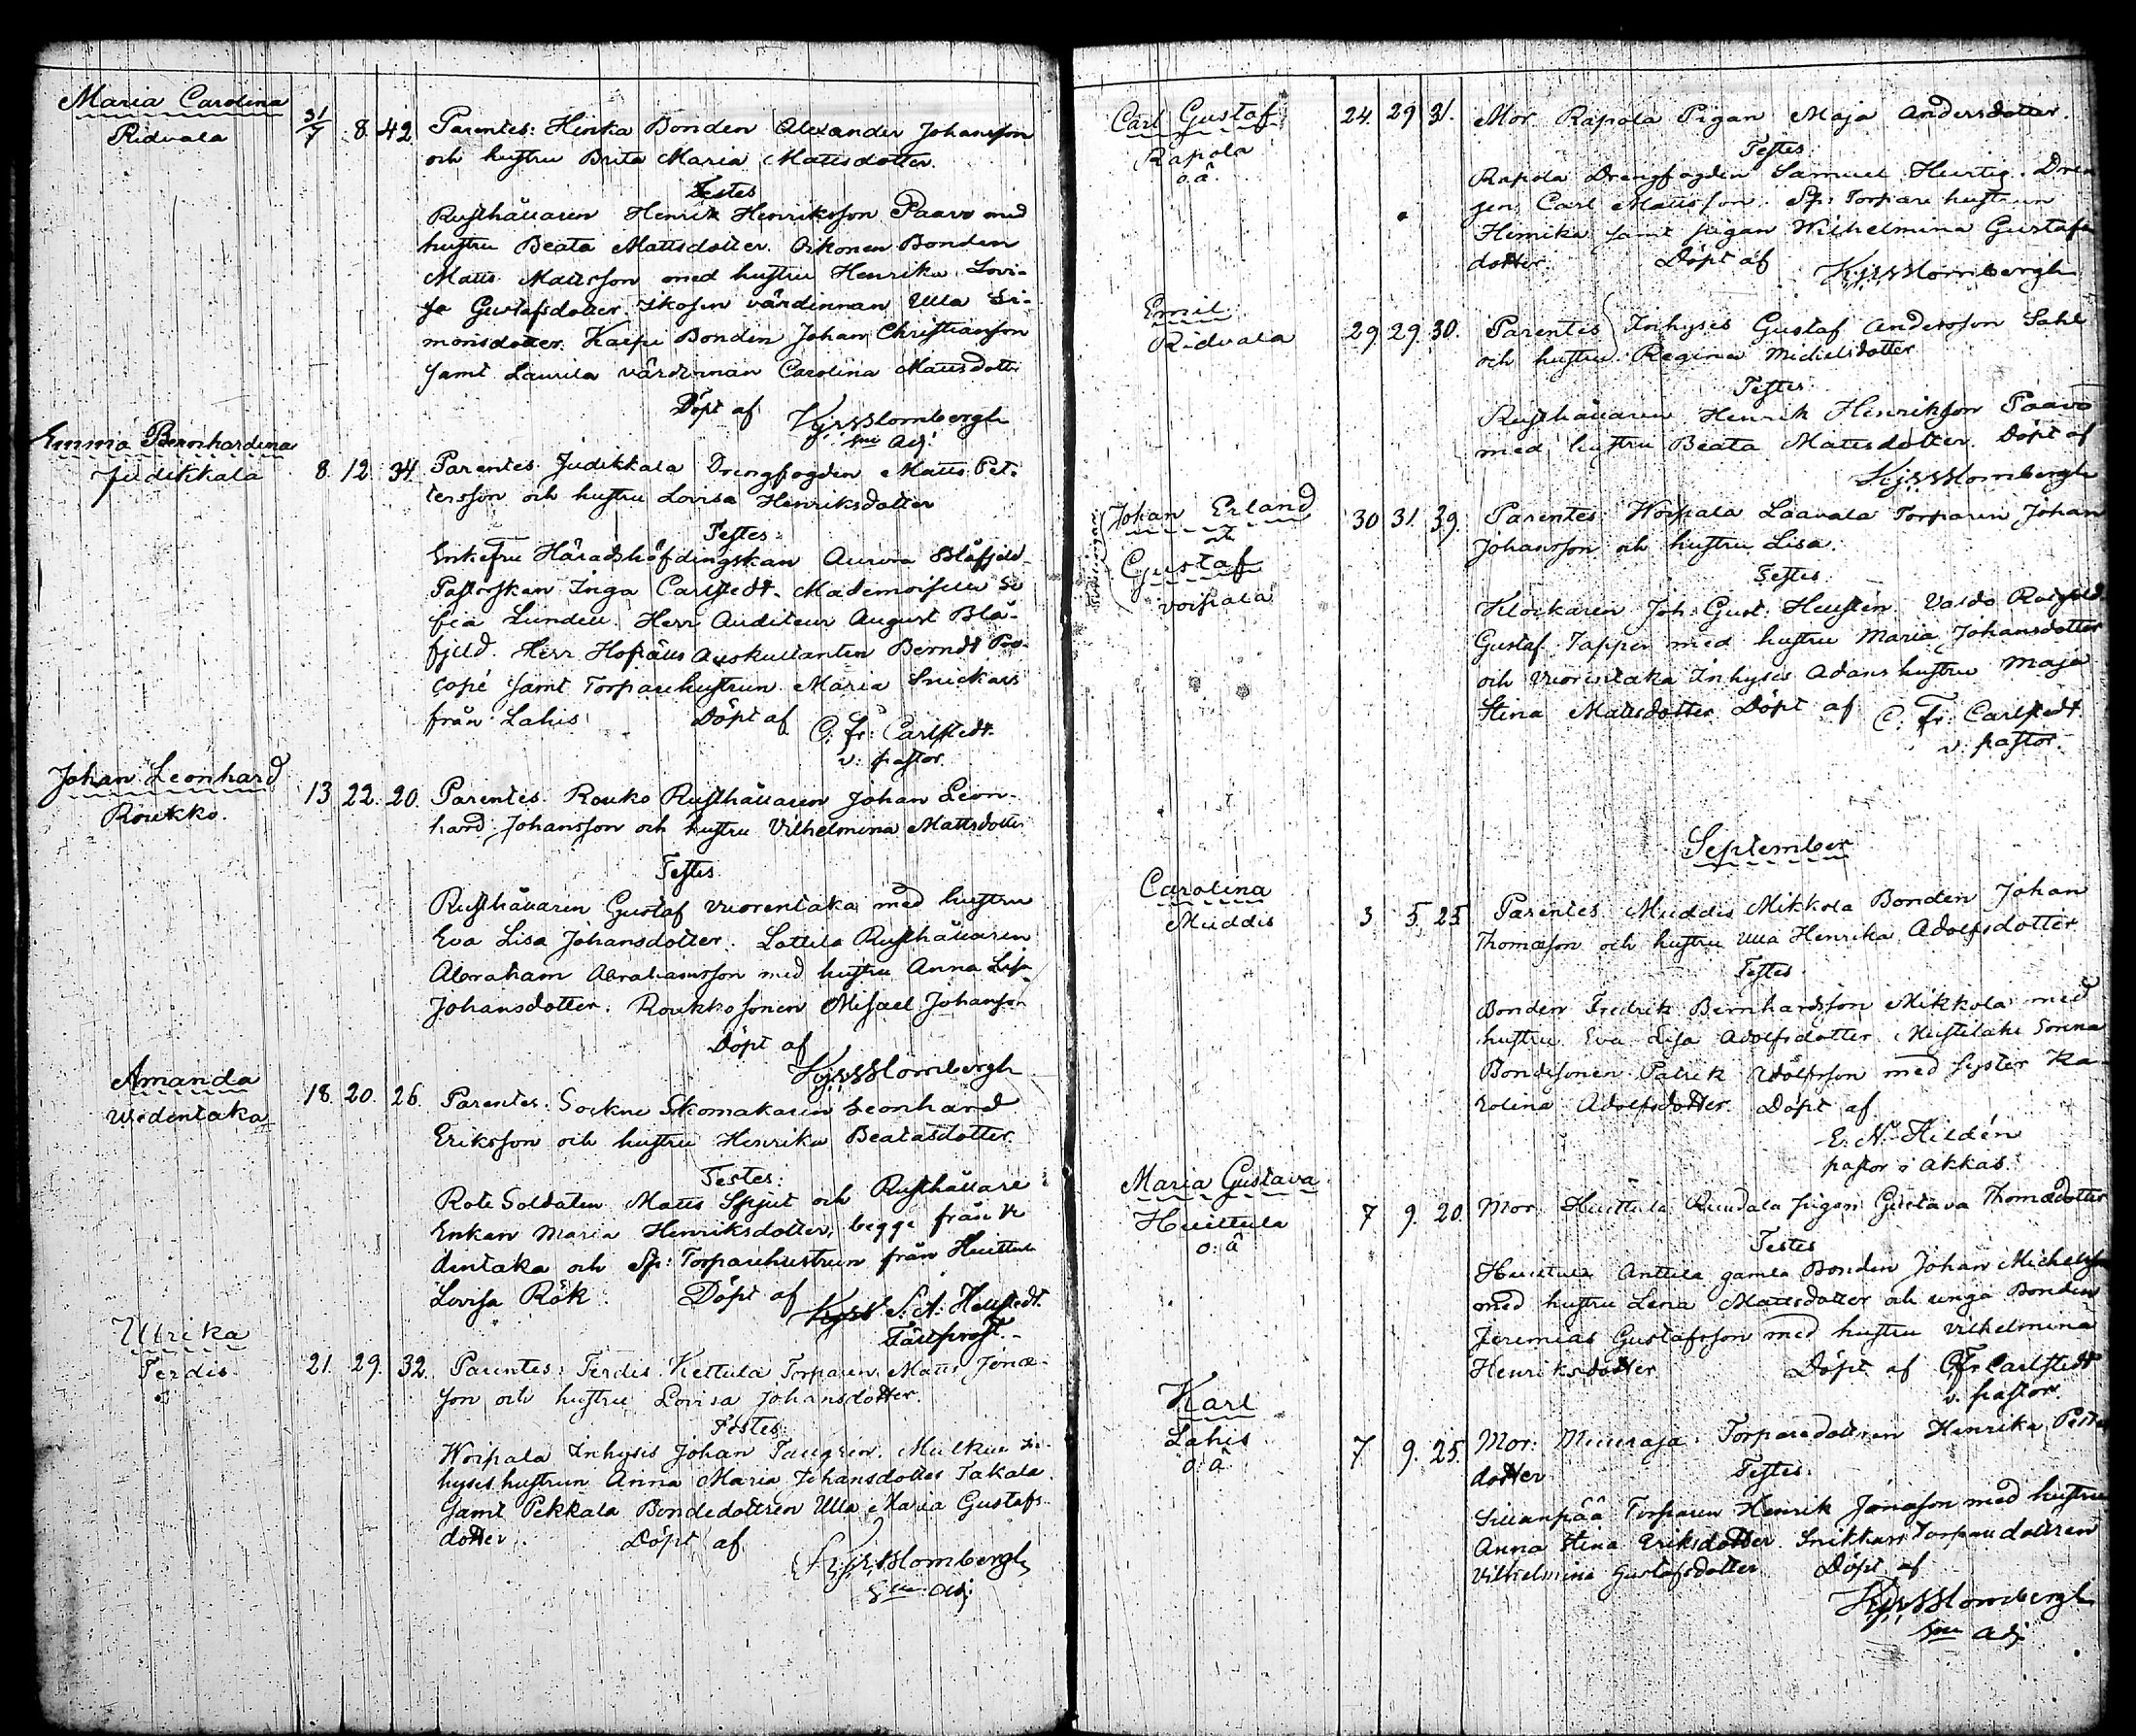 Maria Carolina
Ridvala
31/7 8. 42. Parentes: Hinka Bonden Alexander Johansson
och hustru Brita Maria Mattsdotter.
Testes
Rusthållaren Henrik Henriksson Paavo med
hustru Beata Mattsdotter. Orkonen Bonden
Matts Mattsson med hustru Henrika Lovi-
sa Gustafsdotter. Ikosen värdinnan Ulla Si-
monsdotter. Karpi Bonden Johan Christiansson
samt Laurila värdinnan Carolina Mattsdotter
Döpt af Kyrsslombergh
Sme Adj.
Emma Bernhardina
Judikkala
8. 12. 34. Parentes. Judikkala Drengfogden Matts Pet-
tersson och hustru Lovisa Henriksdotter
Testes:
Enkefru Häradshöfdingskan Aurora Blåfjeld.
Pastorskan Inga Carlstedt. Mademoiselle So
fia Lundell. Herr Auditeur August Blå-
fjeld. Herr Hofrätts Auskultanten Berndt Pro-
copé samt Torparehustrun Maria Snickars
från Lahis Döpt af C. Fr: Carlstedt.
v. pastor.
Johan Leonhard
Roukko.
13 22. 20. Parentes. Rouko Rusthållaren Johan Leon-
hard Johansson och hustru Vilhelmina Mattsdotter
Testes
Rusthållaren Gustaf Vuorentaka med hustru
Eva Lisa Johansdotter. Lottila Rusthållaren
Abraham Abrahamsson med hustru Anna Lisa
Johansdotter. Roukko sonen Misael Johansson
Döpt af
Kyrsslombergh
Amanda
Uredentaka
18. 20. 26. Parentes: Sockne Skomakaren Leonhard
Eriksson och hustru Henrika Beatasdotter.
Testes:
Rote Soldaten Matts Spjut och Rusthållare
Enkan Maria Henriksdotter, begge från Vr
dentaka och Sp: Torparehustrun från Huittula
Lovisa Rök. Döpt af S. A: Hellstedt.
Fältprost.
Ulrika
Terdis.
21. 29. 32. Parentes: Terdis Kettula Torparen Matts Jona-
son och hustru Lovisa Johansdotter.
Testes:
Woipala Inhyses Johan Taugrén. Mulkue In-
hyses hustrun Anna Maria Johansdotter Takala.
samt Pekkala Bondedottren Ulla Maria Gustafs-
dotter. Döpt af
Kyrsslombergh
Sme Adj
Carl Gustaf
Rapola
o. ä.
24. 29. 31. Mor Rapola Pigan Maja Andersdotter.
Testes
Rapola Drengfogden Samuel Hurtig. Dren
gen Carl Mattsson. Sp: Torpare hustrun
Henrika samt pigan Wilhelmina Gustafs
dotter. Döpt af Kyrsslombergh
Emil
Ridvala
29. 29. 30. Parentes Inhyses Gustaf Andersson Sahl
och hustru Regina Michelsdotter
Testes
Rusthållaren Henrik Henriksson Paavo
med hustru Beata Mattsdotter. Döpt af
Kyrsslombergh
Johan Erland
och
Gustaf
Voipala
30 31. 39. Parentes Woipala Laavala Torparen Johan
Johansson och hustru Lisa.
Testes
Klockaren Joh: Gust: Hellstén. Valdo
Gustaf Tapper med hustru Maria Johansdotter
och Vuorentaka Inhyses Adams hustru Maja
Stina Mattsdotter Döpt af C. Fr: Carlstedt
v: pastor.
September
Carolina
Muddis
3. 5. 25. Parentes Muddis Mikkola Bonden Johan
Thomasson och hustru Ulla Henrika Adolfsdotter
Testes
Bonden Fredrik Bernhardsson Mikkola med
hustru Eva Lisa Adolfsdotter. Sorina
Bondesonen Patrik Adolfsson med Syster Ka-
rolina Adolfsdotter. Döpt af
E. N. Hildén
pastor i Akkas.
Maria Gustava
Huittula
o: ä
7 9. 20. Mor Huittula Pigan Gustava Thomasdotter
Testes
Huittula Anttila gamla Bonden Johan Michelsson
med hustru Lena Mattsdotter och unga Bonden
Jeremias Gustafsson med hustru Vilhelmina
Henriksdotter Döpt af C. Fr: Carlstedt
v. pastor.
Karl
Lahis
o: ä
7 9. 25. Mor: Torparedottren Henrika
dotter Testes:
Sillanpää Torparen Henrik Jonasson med hustru
Anna Stina Eriksdotter. Snikkars Torparedottren
Vilhelmina Gustafsdotter Döpt af
Kyrsslombergh
Sme Adj